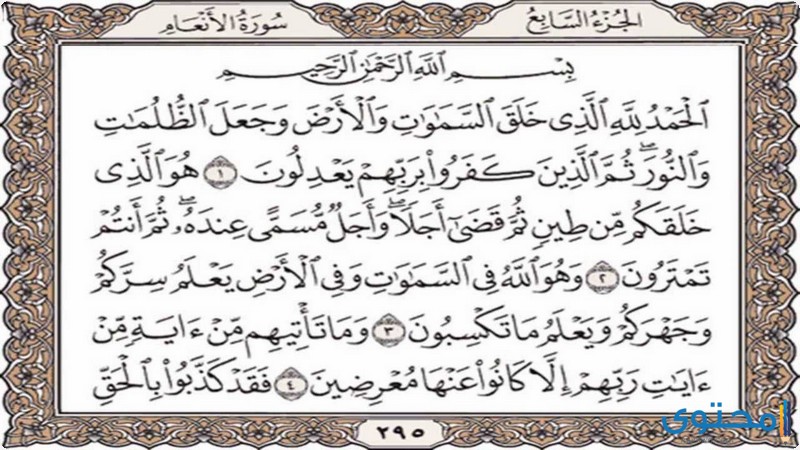 الجُزْءُ السَّابِعُ
سُورَةُ الأَنْعَامِ
بِسْمِ اللَّهِ الرَّحْمَٰنِ الرَّحِيمِ
الْحَمْدُ لِلَّهِ الَّذِي خَلَقَ السَّمَاوَاتِ وَالْأَرْضَ وَجَعَلَ الظُّلُمَاتِ
وَالنُّورَ ۖ ثُمَّ الَّذِينَ كَفَرُوا بِرَبِّهِمْ يَعْدِلُونَ ١ هُوَ الَّذِي
خَلَقَكُم مِّن طِينٍ ثُمَّ قَضَىٰ أَجَلًا ۖ وَأَجَلٌ مُّسَمًّى عِندَهُ ۖ ثُمَّ أَنتُمْ
تَمْتَرُونَ ٢ وَهُوَ اللَّهُ فِي السَّمَاوَاتِ وَفِي الْأَرْضِ يَعْلَمُ سِرَّكُمْ
وَجَهْرَكُمْ وَيَعْلَمُ مَا تَكْسِبُونَ ٣ وَمَا تَأْتِيهِم مِّنْ ءَايَةٍ مِّنْ
ءَايَاتِ رَبِّهِمْ إِلَّا كَانُوا عَنْهَا مُعْرِضِينَ ٤ فَقَدْ كَذَّبُوا بِالْحَقِّ
٢٩٥
محتوى